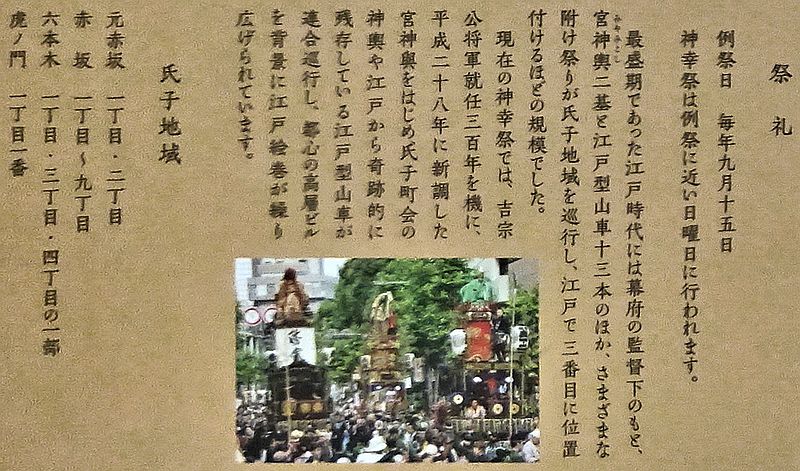 祭礼
例祭日　毎年九月十五日
神幸祭は例祭に近い日曜日に行われます。
最盛期であった江戸時代には幕府の監督下のもと、
宮神輿二基と江戸型山車十三本のほか、さまざまな
附け祭りが氏子地域を巡行し、江戸で三番目に位置
付けるほどの規模でした。
現在の神幸祭では、吉宗
公将軍就任三百年を機に、
平成二十八年に新調した
宮神輿をはじめ氏子町会の
神輿や江戸から奇跡的に
残存している江戸型山車が
連合巡行し、都心の高層ビル
を背景に江戸絵巻が繰り
広げられています。
氏子地域
元赤坂　一丁目・二丁目
赤　坂　一丁目〜九丁目
六本木　一丁目・三丁目・四丁目の一部
虎ノ門　一丁目一番